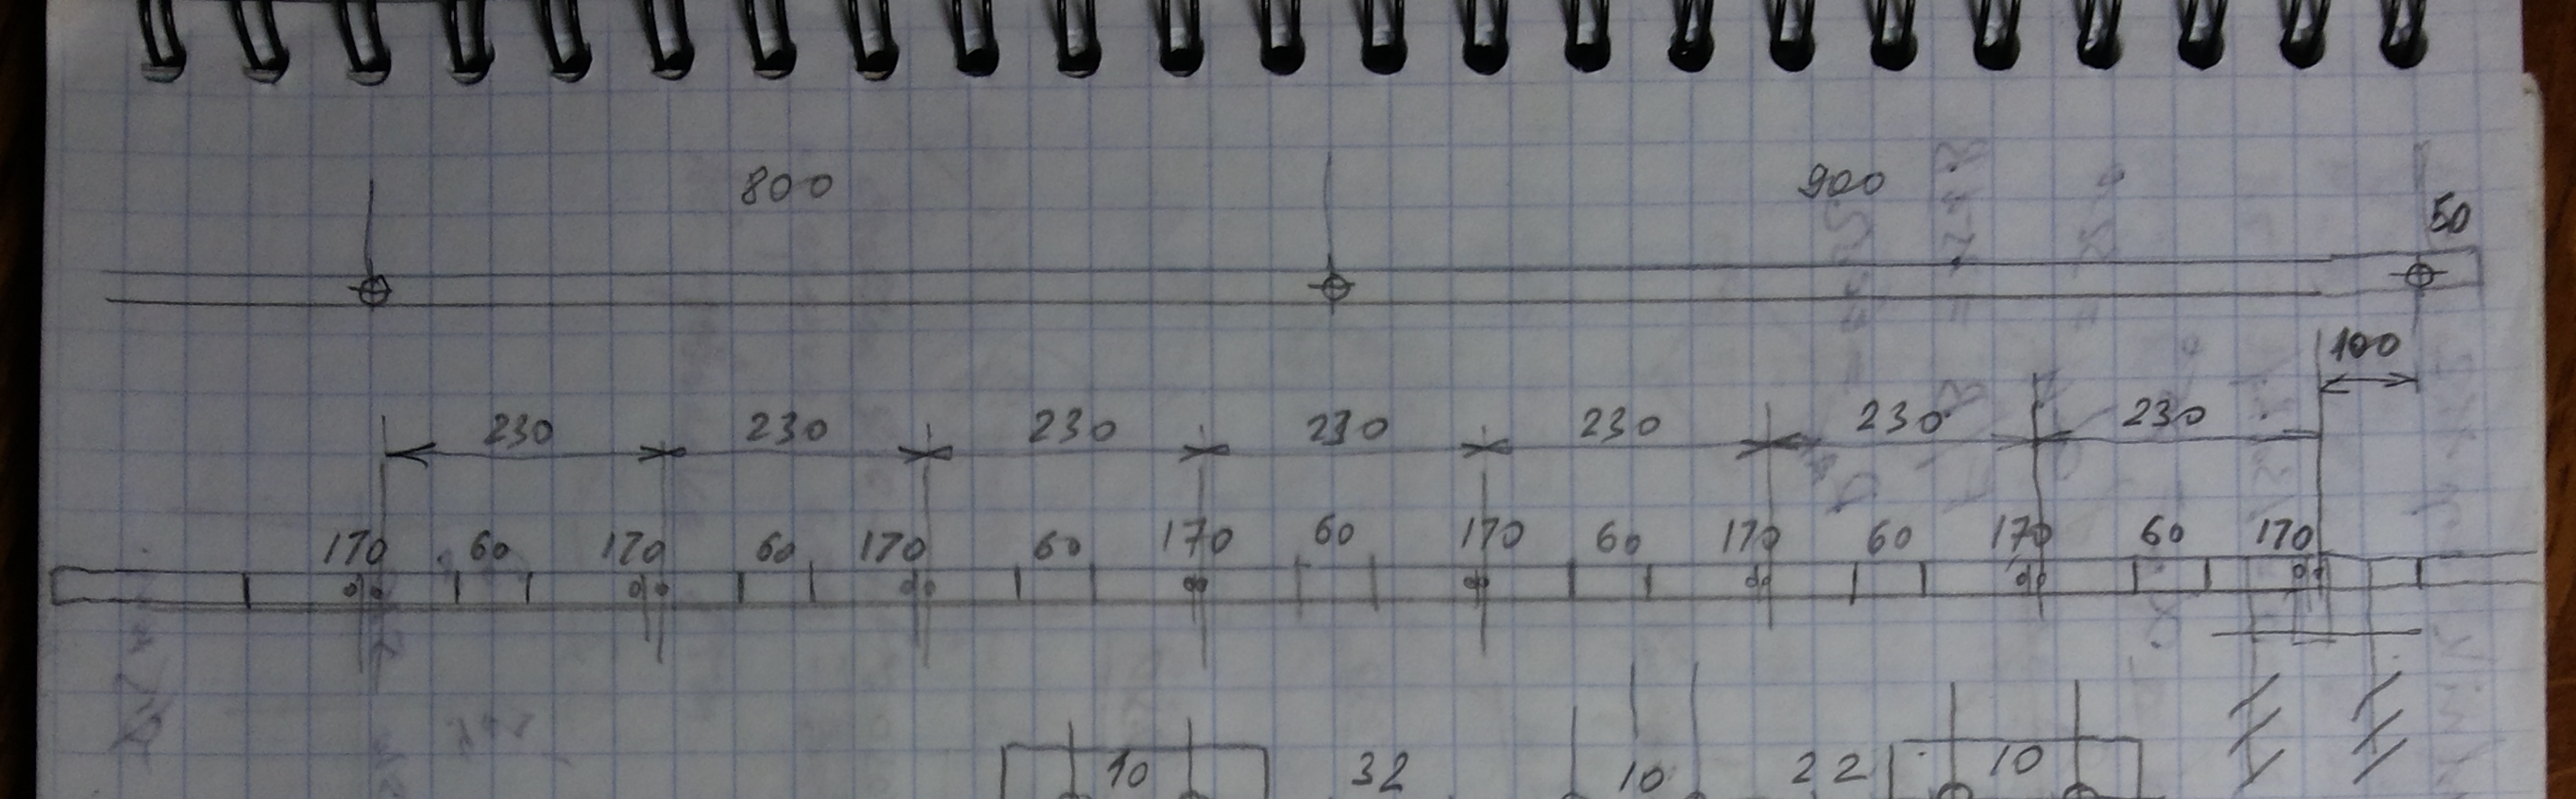 800 900
50
100
230 230 230 230 230 230 230
170 60 170 60 170 60 170 60 170 60 170 60 170 60 170
10 32 10 22 10